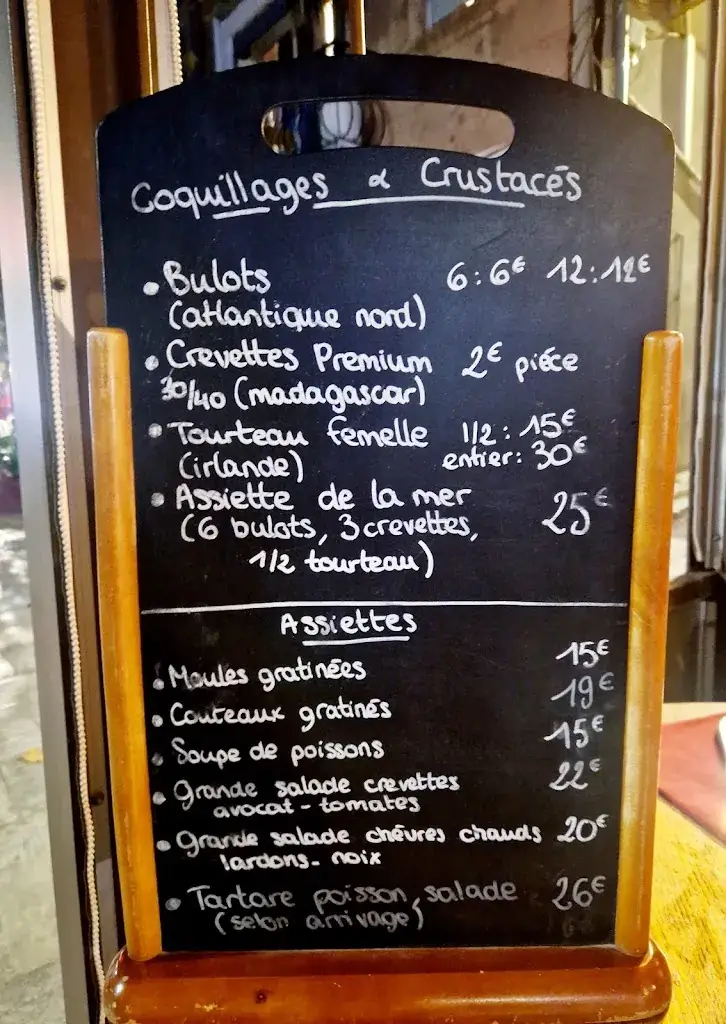 Coquillages & Crustacés
• Bulots 6:6€ 12:12€
(atlantique nord)
• Crevettes Premium 2€ piéce
30/40 (madagascar)
• Tourteau femelle 1/2: 15€
(irlande) entier: 30€
• Assiette de la mer 25€
(6 bulots, 3 crevettes,
1/2 tourteau)
Assiettes
• Moules gratinées 15€
• Couteaux gratinés 19€
• Soupe de poissons 15€
• Grande salade crevettes 22€
avocat - tomates
• Grande salade chévres chauds 20€
lardons - noix
• Tartare poisson, salade 26€
(selon arrivage)